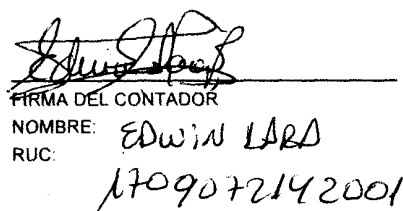 FIRMA DEL CONTADOR
NOMBRE: EDWIN LARA
RUC:
1709072142001